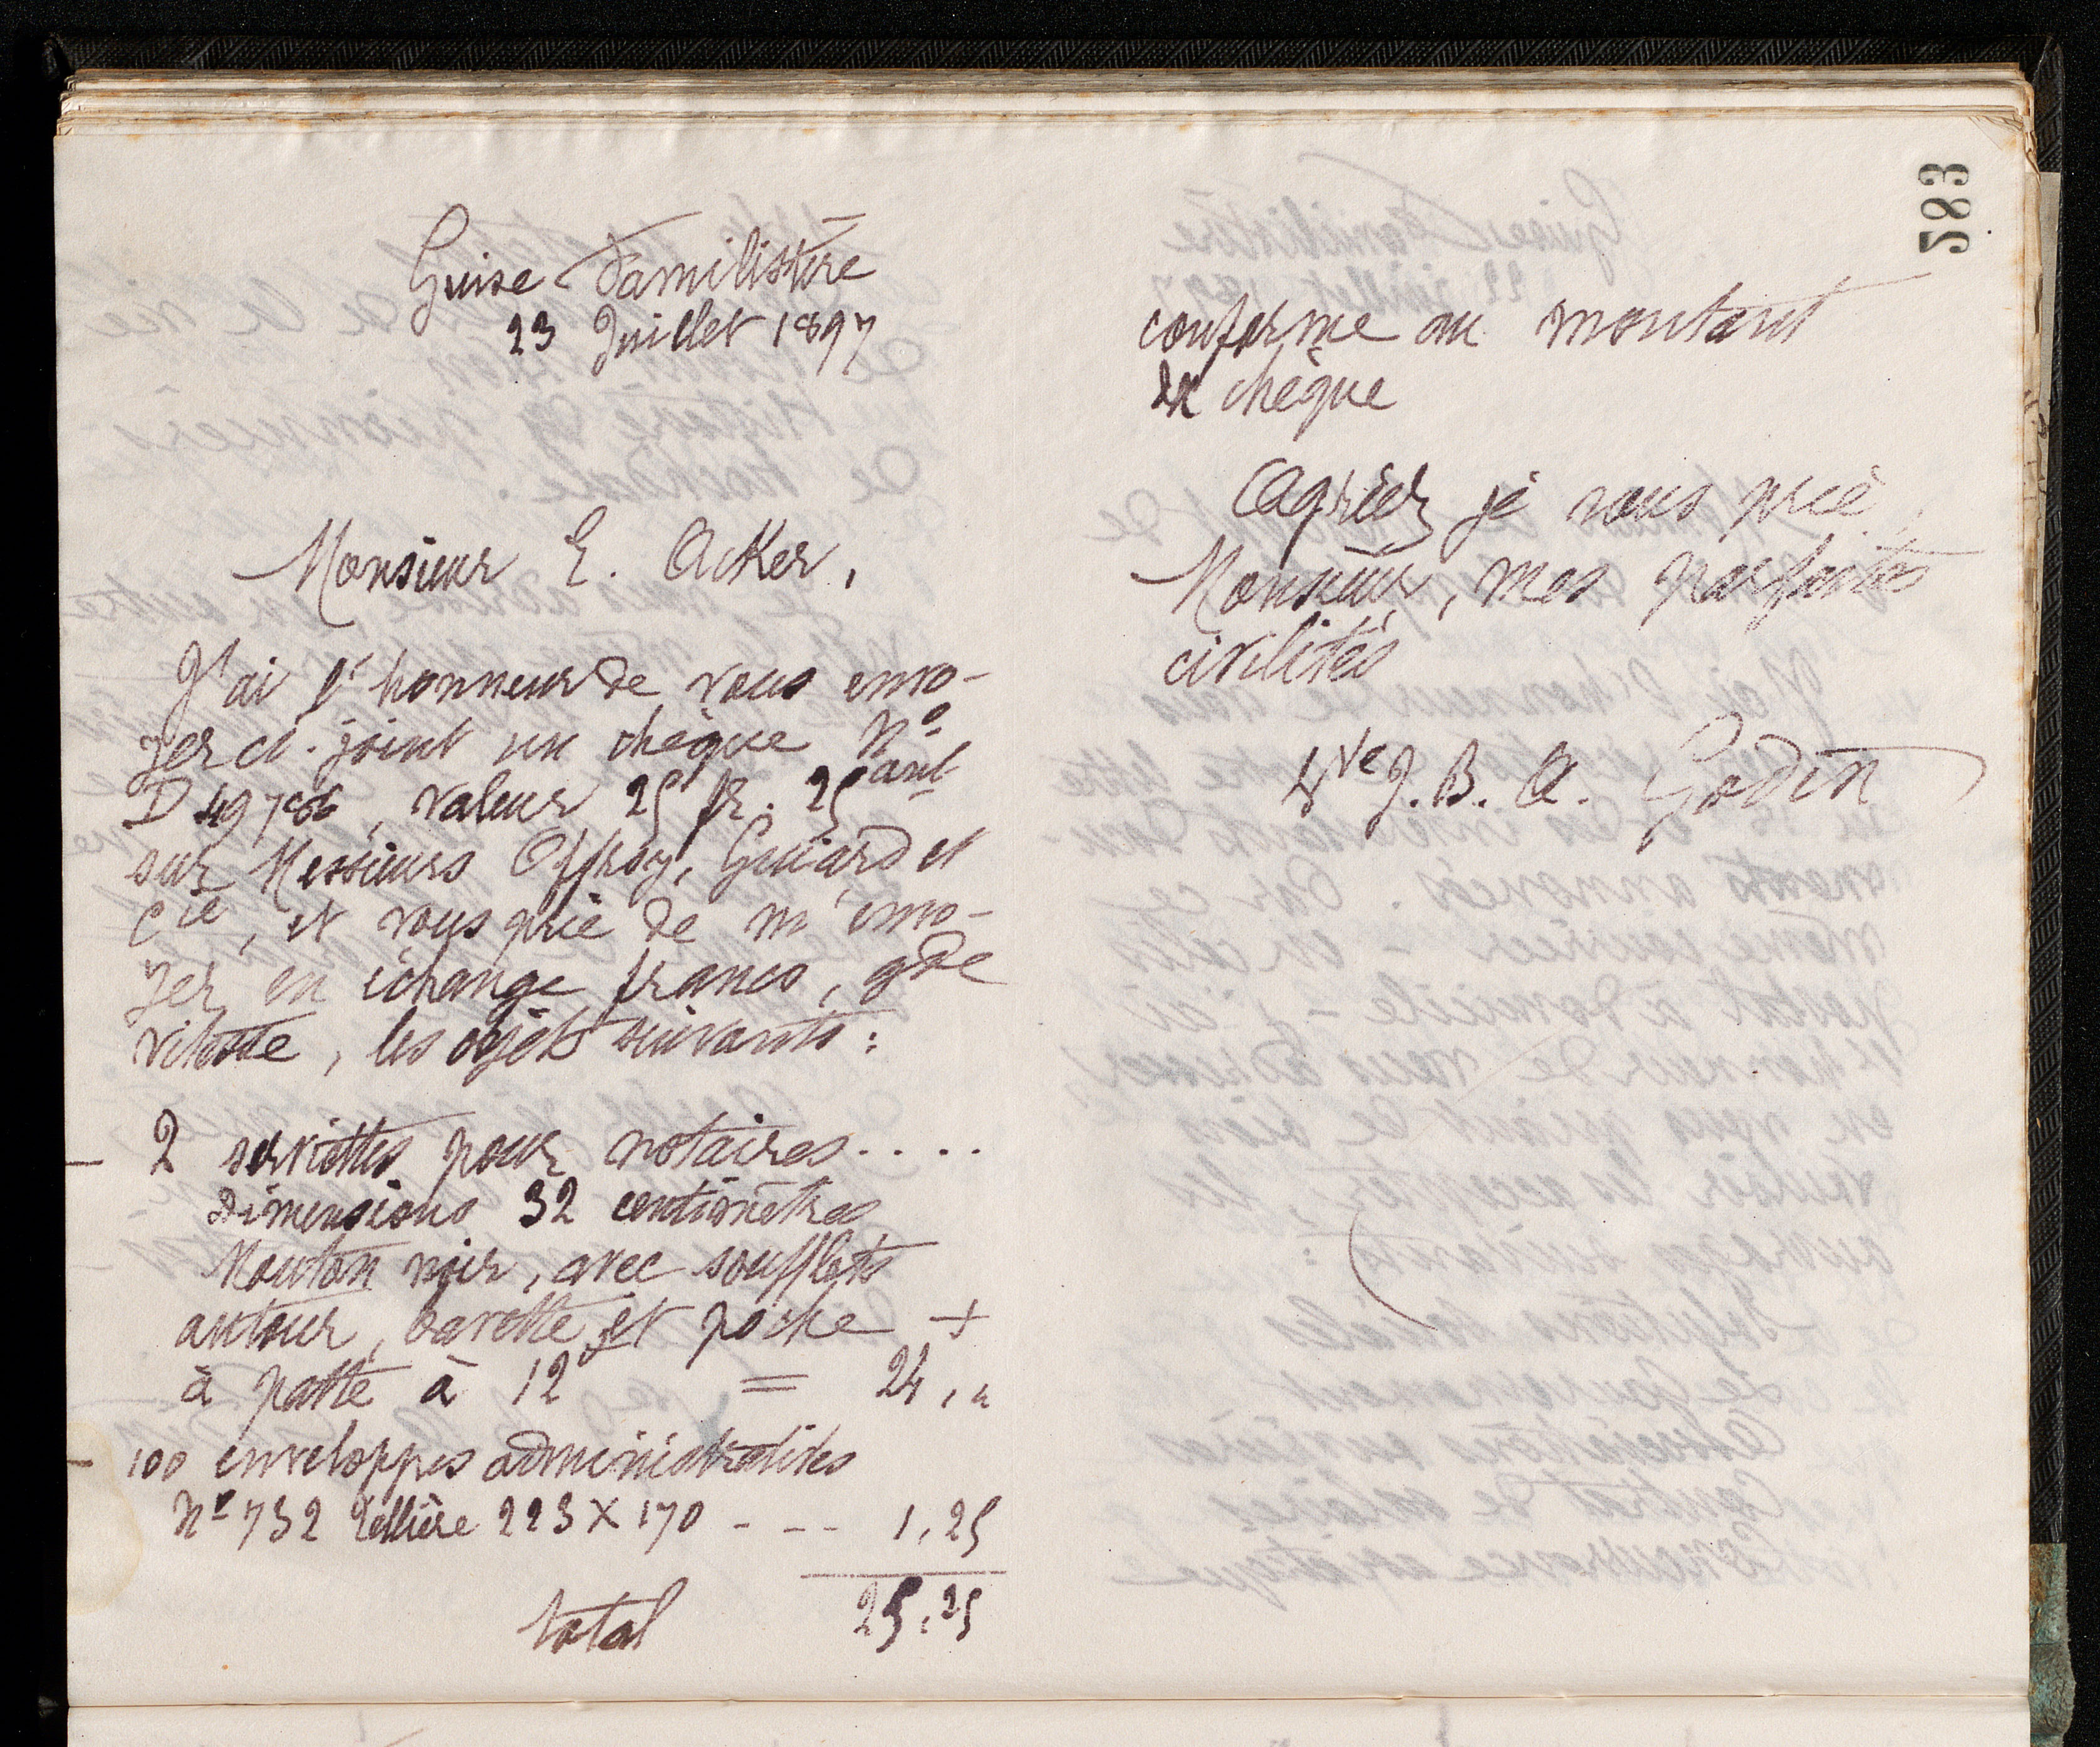 Guise Familistère
23 Juillet 1897
Monsieur E. Acker,
J'ai l'honneur de vous envo-
yer ci-joint un chèque No
D 49786, valeur 25 fr. 25 ant
sur Messieurs Offroy, Guiard et
Cie, et vous prie de m'envo-
yer en échange franco, gde
vitesse, les objets suivants :
2 serviettes pour notaires....
Dimensions 32 centimètres
Mouton noir, avec soufflets
autour, barette et poche +
à patte à 12f = 24, "
100 enveloppes administratives
No 732 Tellière 223 X 170 - -- 1,25
total 25,25
583
conforme au montant
du chèque
Agréez je vous prie,
Monsieur, mes parfaites
civilités
Vve J. B. A. Godin